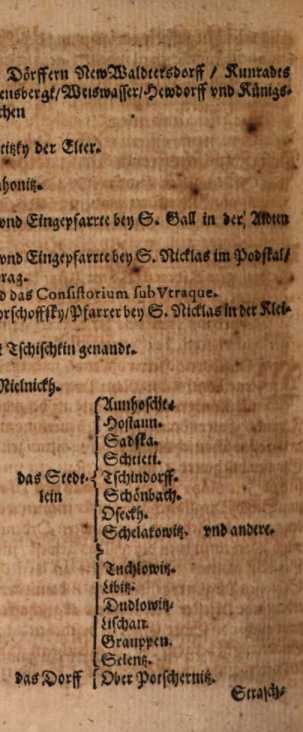 Dörffern NewWaldtersdorff / Kunrades
ensbergk/Weiswasser/Hewdorff vnd Künigs-
chen
titzky der Elter.
honitz.
vnd Eingepfarrte bey S. Gall in der Alten
vnd Eingepfarrte bey S. Nicklas im Podskal/
rag.
d das Consistorium sub Vtraque.
orschoffsky/Pfarrer bey S. Nicklas in der Klei-
Tschischkin genandt.
Mielnickh.
Aunhoscht.
Hostaun.
Sadska.
Schtieti.
das Stedt- Tschindorff.
lein Schönbach.
Oseckh.
Schelakowitz. vnd andere.
Tuchlowitz.
Libitz.
Dudlowitz.
Lischan.
Grauppen.
Selentz.
das Dorff Ober Potschernitz.
Strasch-